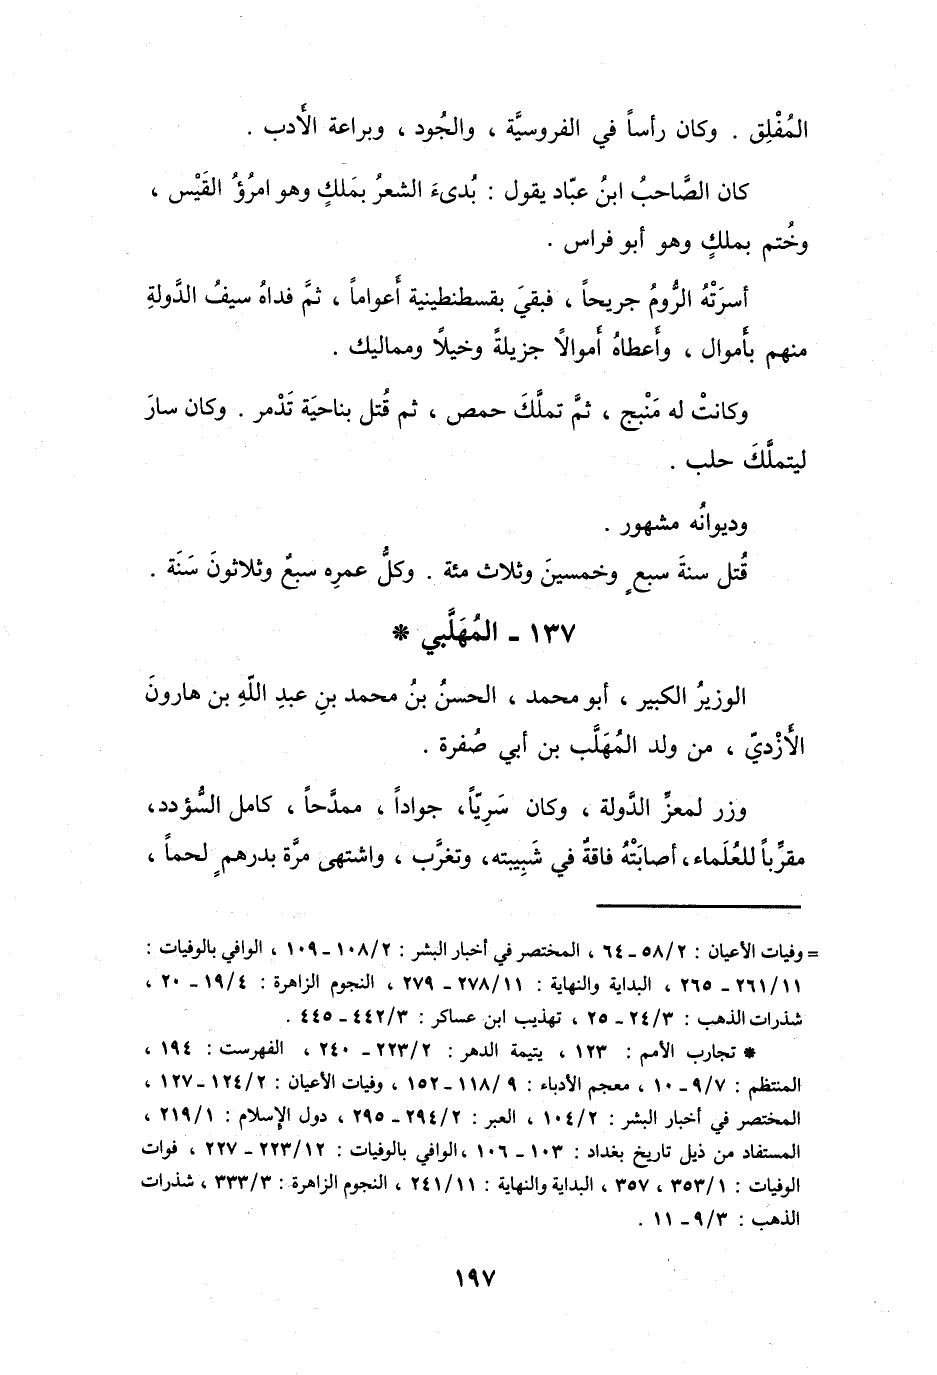 المُفْلِق . وكان رأساً في الفروسيَّة ، والجُود ، وبراعة الأَدب .
كان الصَّاحبُ ابنُ عبَّاد يقول : بُدىءَ الشعرُ بمَلكٍ وهو امرُؤُ القَيْس ،
وخُتم بملكٍ وهو أبو فراس .
أسرَتْهُ الرُّومُ جريحاً ، فبقيَ بقسطنطينية أَعواماً ، ثمَّ فداهُ سيفُ الدَّولةِ
منهم بأَموال ، وأَعطاهُ أَموالاً جزيلةً وخيلاً ومماليك .
وكانتْ له مَنْبج ، ثمَّ تملَّكَ حمص ، ثم قُتل بناحيَة تَدْمر . وكان سارَ
ليتملَّكَ حلب .
وديوانُه مشهور .
قُتل سنةَ سبعٍ وخمسينَ وثلاث مئة . وكلُّ عمرِه سبعٌ وثلاثونَ سَنَة .
١٣٧ ـ المُهَلَّبي *
الوزيرُ الكبير ، أبو محمد ، الحسنُ بنُ محمد بنِ عبدِ اللّهِ بن هارونَ
الأَزْديّ ، من ولد المُهَلَّب بن أبي صُفرة .
وزر لمعزِّ الدَّولة ، وكان سَرِيّاً، جواداً ، ممدَّحاً ، كامل السُّؤدد،
مقرِّباً للعُلَماء، أصابَتْهُ فاقةٌ في شَبِيبته، وتغرَّب ، واشتهى مرَّة بدرهمٍ لحماً ،
= وفيات الأعيان : ٥٨/٢ ـ ٦٤ ، المختصر في أخبار البشر : ١٠٨/٢ ـ ١٠٩ ، الوافي بالوفيات :
٢٦١/١١ ـ ٢٦٥ ، البداية والنهاية : ٢٧٨/١١ ـ ٢٧٩ ، النجوم الزاهرة : ١٩/٤ ـ ٢٠ ،
شذرات الذهب : ٢٤/٣ ـ ٢٥ ، تهذيب ابن عساكر : ٤٤٢/٣ ـ ٤٤٥ .
* تجارب الأمم : ١٢٣ ، يتيمة الدهر : ٢٢٣/٢ ـ ٢٤٠ ، الفهرست : ١٩٤ ،
المنتظم : ٩/٧ ـ ١٠ ، معجم الأدباء : ٩/ ١١٨ ـ ١٥٢ ، وفيات الأعيان : ١٢٤/٢ ـ ١٢٧ ،
المختصر في أخبار البشر : ١٠٤/٢ ، العبر : ٢٩٤/٢ ـ ٢٩٥ ، دول الإسلام : ٢١٩/١ ،
المستفاد من ذيل تاريخ بغداد : ١٠٣ ـ ١٠٦ ،الوافي بالوفيات : ٢٢٣/١٢ ـ ٢٢٧ ، فوات
الوفيات : ٣٥٣/١ ، ٣٥٧ ، البداية والنهاية : ٢٤١/١١ ، النجوم الزاهرة : ٣٣٣/٣ ، شذرات
الذهب : ٩/٣ ـ ١١ .
١٩٧